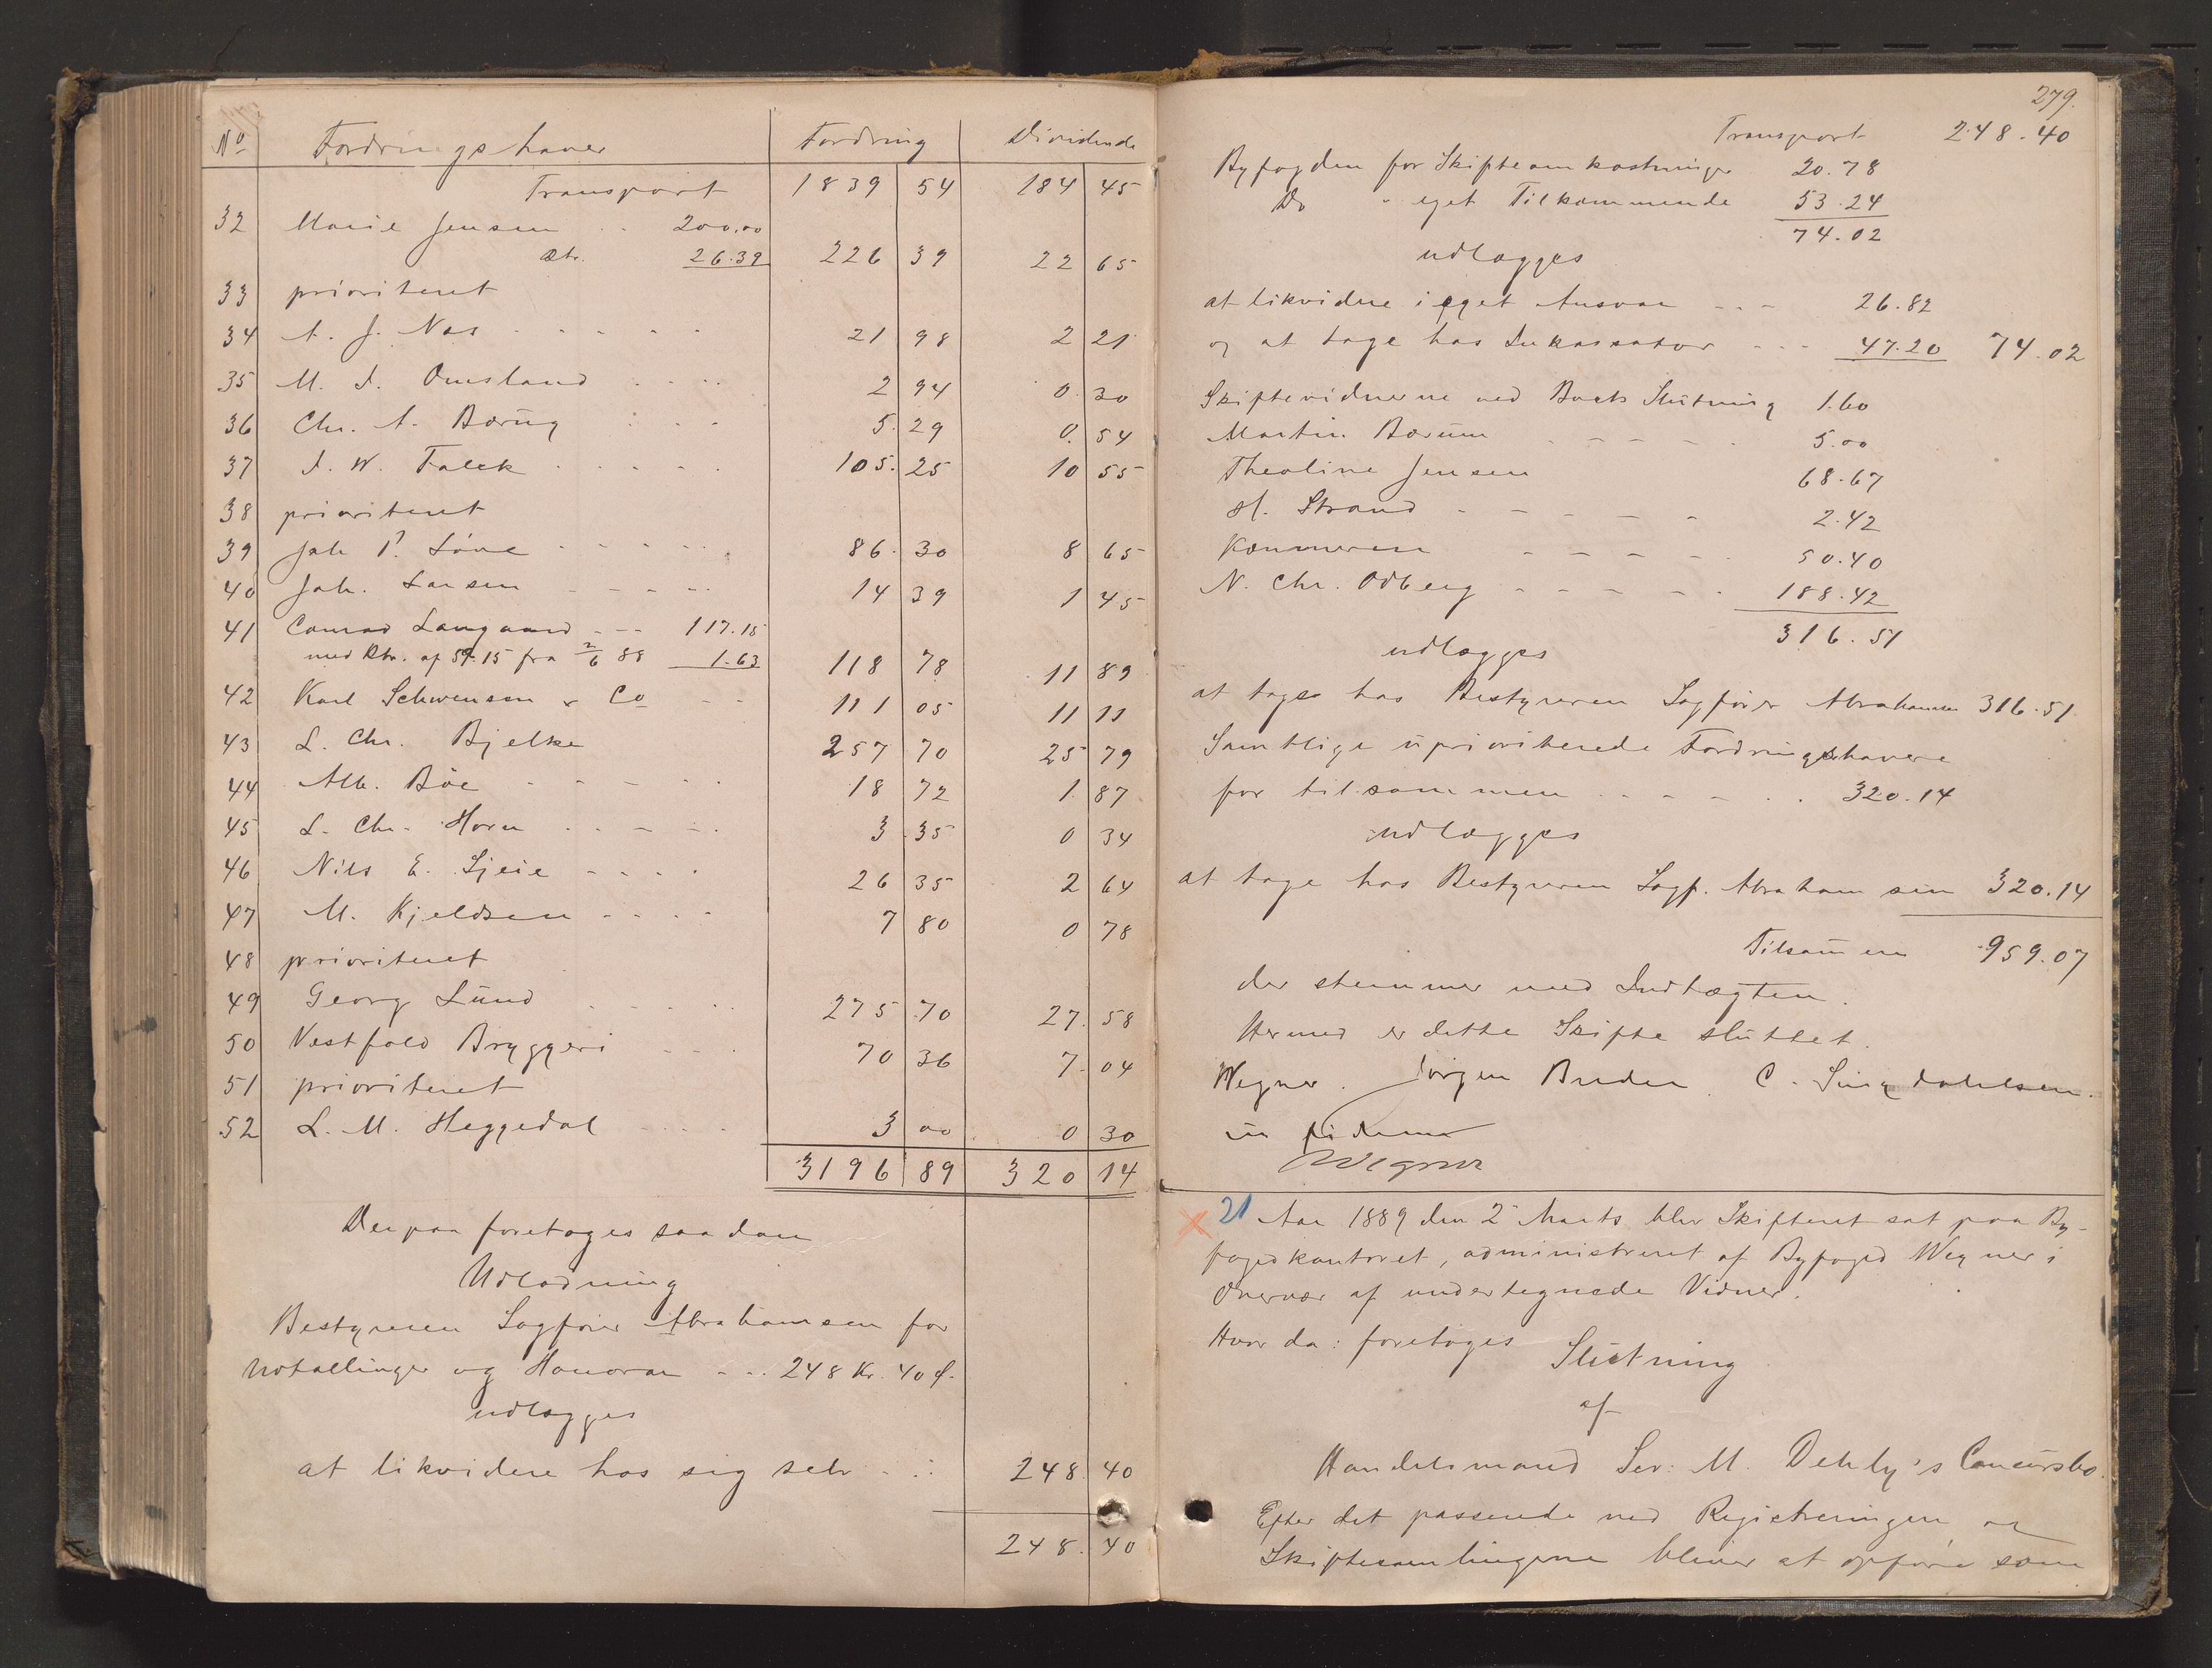 No Fordringshaver Fordring Dividende
Transport 1839 54 184 45
32 Marie Jensen . . 200.00
Rtr. 26.39 226 39 22 65
33 prioriteret
34 A. J. Nas - - - - - 21 98 2 21
35 M. A. Omsland . . . . 2 94 0 30
36 Chr. A. Bærug . . . 5. 29 0. 54
37 A. W. Falck . . . . . 105. 25 10 55
38 prioriteret
39 Joh P. Löve - - - - - 86. 30 8 65
40 Joh. Larsen - - - - - 14 39 1 45
41 Conrad Langaard - - - 117.15
med Rtr. af 59.15 fra 2/6 88 1.63 118 78 11 89
42 Karl Schwensen & Co - - 111 05 11 11
43 L. Chr. Bjelke 257 70 25 79
44 Alb. Böe - - - - - 18 72 1. 87
45 L. Chr. Horn . . . . . 3. 35 0 34
46 Nils E. Ljeie - - - - 26 35 2 64
47 M. Kjeldsen - - - - 7 80 0 78
48 prioriteret
49 Georg Lund . . . . . 275 70 27. 58
50 Vestfold Bryggeri - - - 70 36 7. 04
51 prioriteret
52 L. M. Heggedal . . . . 3 00 0 30
3196 89 320 14
Derpaa foretoges saadan
Udlodning
Bestyreren Sagfører Abrahamsen for
Udtællinger og Honorar - . . 248 Kr. 40 Ø.
udlægges
at likvidere hos sig selv - . . 248. 40
248. 40
279.
Transport 248.40
Byfogden for Skifteomkostninger 20.78
Do " eget Tilkommende 53.24
74.02
udlægges
at likvidere i eget Ansvar - - - 26.82
og at tage hos Inkassator - - - 47.20 74.02
Skiftevidnerne ved Boets Slutning 1.60
Martin Bærum - - - - - 5.00
Theoline Jensen 68.67
H. Strand - - - - - - 2.42
Kæmneren - - - - - 50.40
N. Chr. Odberg - - - - - - 188.42
316.51
udlægges
at tage hos Bestyreren Sagfører Abrahamsen 316.51
Samtlige uprioriterede Fordringshavere
for tilsammen - - - - - . 320.14
udlægges
at tage hos Bestyreren Sagf. Abrahamsen 320.14
Tilsammen 959.07
der stemmer med Indtægten.
Hermed er dette Skifte sluttet.
Wegner. Jörgen Bruden C. Dahlsen.
in fidem
Wegner
21 Aar 1889 den 2 Marts blev Skifteret sat paa By-
fogedkontoret, administreret af Byfoged Wegner i
Overvær af undertegnede Vidner.
Hvor da: foretoges Slutning
af
Handelsmand Sev: M. Dehly's Concursbo.
Efter det passerede ved Registeringen og
Skiftesamlingerne bliver at opføre som